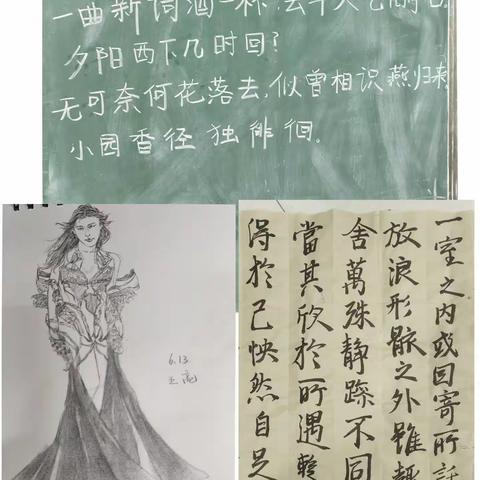 一曲新词酒一杯,去年天气旧
夕阳西下几时回?
无可奈何花落去,似曾相识燕归来。
小园香径独徘徊。
6.13
王
一室之内或因寄所託
放浪形骸之外雖趣
舍萬殊静躁不同
當其欣於所遇暫
得於己怏然自足